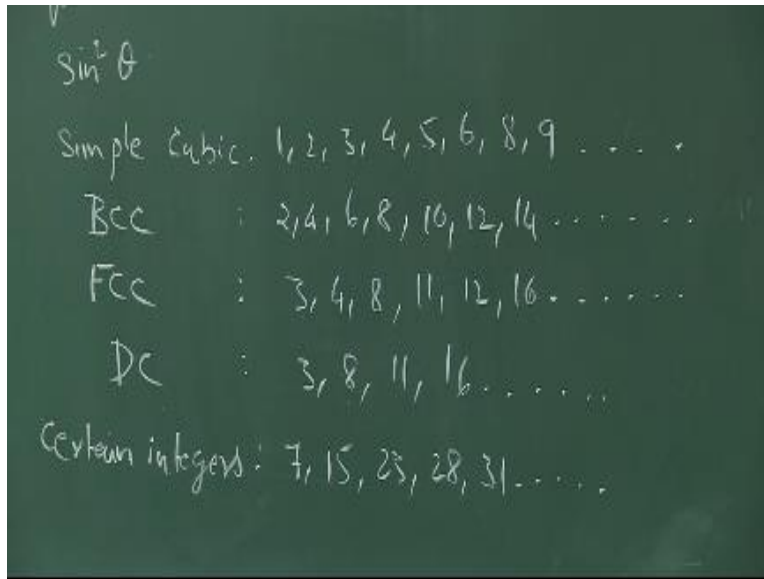 Sin² θ
Simple Cubic. 1, 2, 3, 4, 5, 6, 8, 9 . . . . .
BCC : 2, 4, 6, 8, 10, 12, 14 . . . . . .
FCC : 3, 4, 8, 11, 12, 16 . . . . . .
DC : 3, 8, 11, 16 . . . . . .
Certain integers: 7, 15, 23, 28, 31 . . . . .